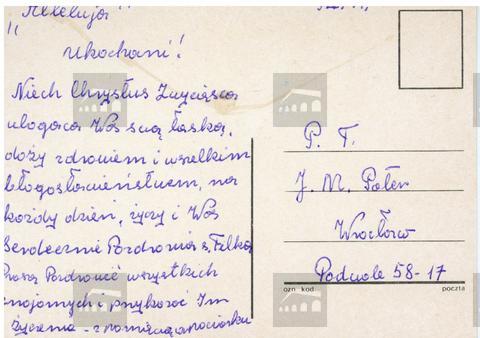 "Alleluja"
Ukochani!
Niech Chrystus Zwycięsca
ubogaca Was swą łaską,
darzy zdrowiem i wszelkim
błogosławieństwem, na
każdy dzień, życzy i Was
Serdecznie Pozdrawia s. Falka
Proszę Pozdrowić wszystkich
znajomych i przykazać Im
życzenia - z pamięcią
P. T.
J. M. Poler
Wrocław
Podwale 58-17
ozn kod poczta